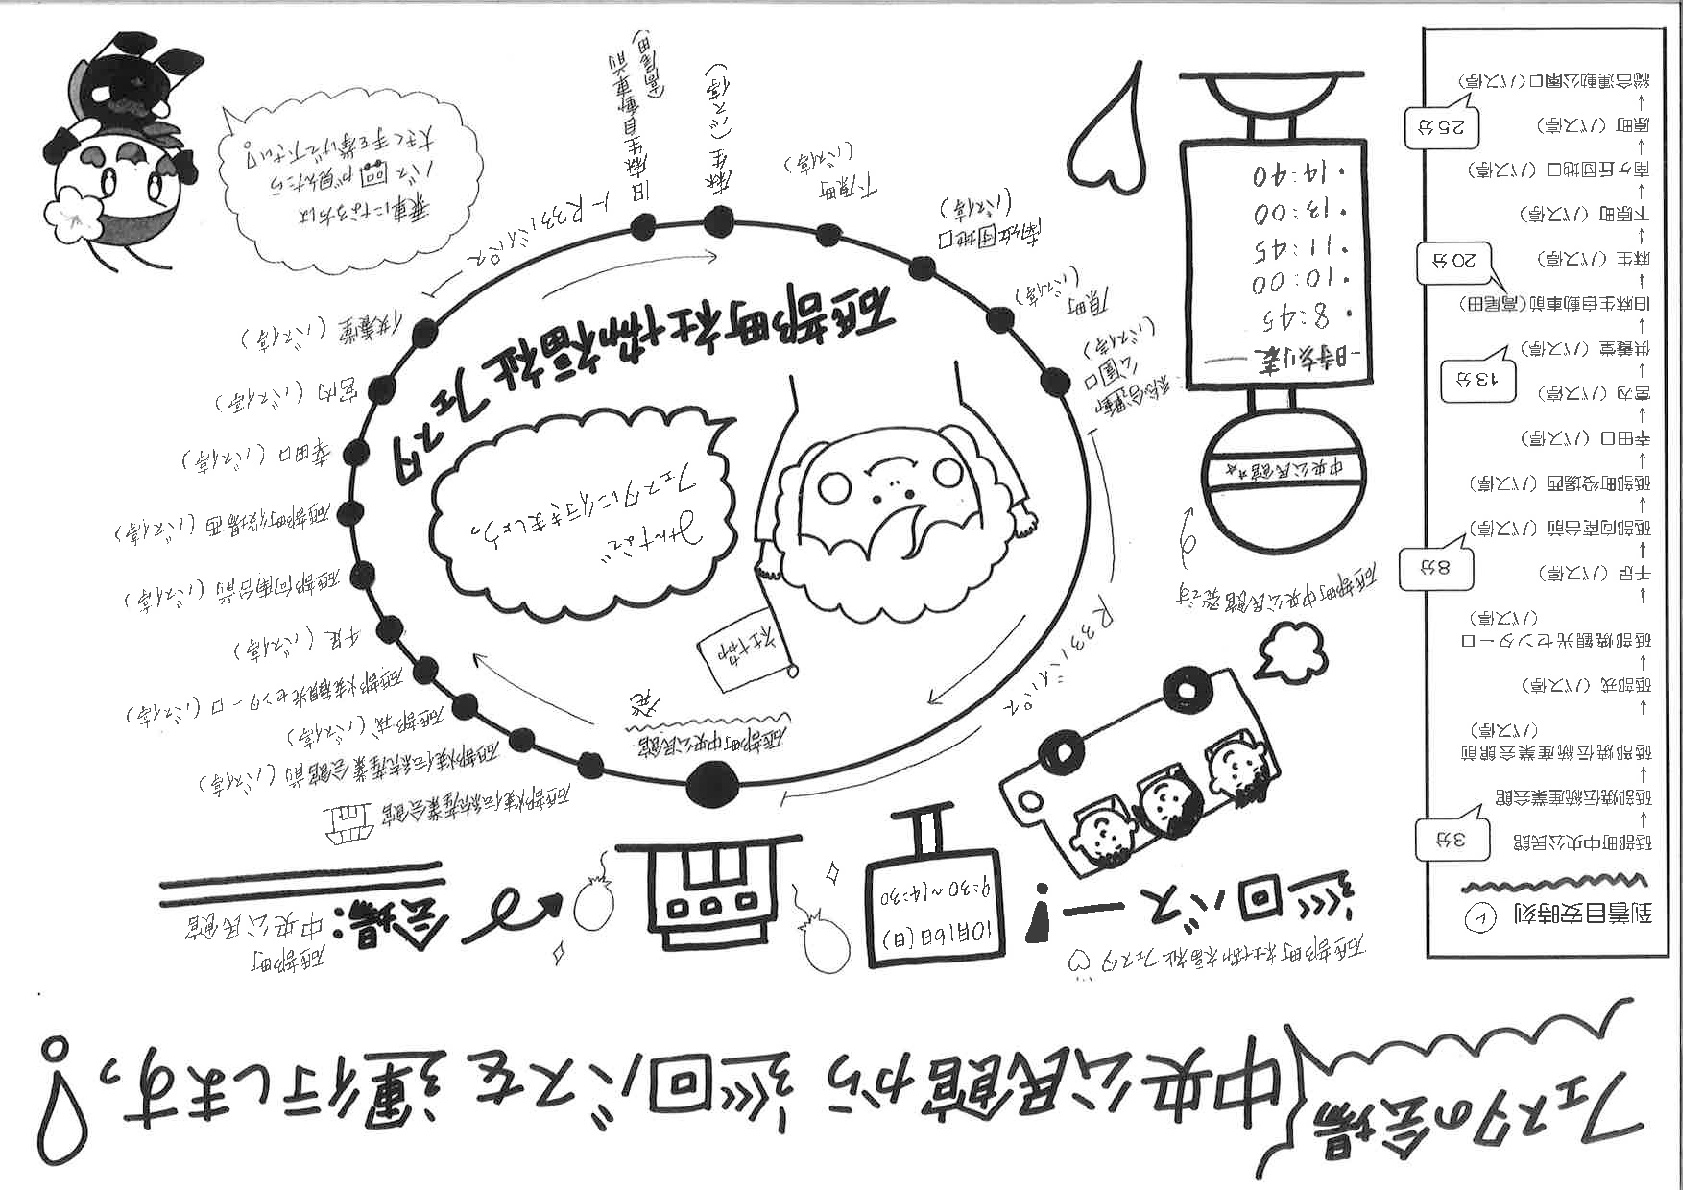 フェスタの会場 中央公民館から 巡回バスを 運行します。!
到着目安時刻
砥部町中央公民館
↓
3分
砥部焼伝統産業会館
↓
砥部焼伝統産業会館前
(バス停)
↓
砥部戎(バス停)
↓
砥部焼観光センター口
(バス停)
↓
千足(バス停)
↓
8分
砥部向南台前(バス停)
↓
砥部町役場西(バス停)
↓
幸田口(バス停)
↓
宮内(バス停)
↓
13分
供養堂(バス停)
↓
旧麻生自動車前(高尾田)
↓
20分
麻生(バス停)
↓
下原町(バス停)
↓
南ヶ丘団地口(バス停)
↓
原町(バス停)
↓
25分
総合運動公園口(バス停)
砥部町社協福祉フェスタ♡
巡回バスー!
10月16日(日)
9:30~14:30
会場:
砥部町
中央公民館
砥部町中央公民館発です
中央公民館☆☆
-時刻表-
・8:45
・10:00
・11:45
・13:00
・14:40
砥部町中央公民館
発
砥部焼伝統産業会館
砥部焼伝統産業会館前(バス停)
砥部戎(バス停)
砥部焼観光センター口(バス停)
千足(バス停)
砥部向南台前(バス停)
砥部町役場西(バス停)
幸田口(バス停)
宮内(バス停)
供養堂(バス停)
R33バイパス
旧麻生自動車前
(高尾田)
麻生(バス停)
下原町
(バス停)
南ヶ丘団地口
(バス停)
原町
(バス停)
総合運動
公園口
(バス停)
R33バイパス
社協
みんなで
フェスタに行きましょう。
砥部町社協福祉フェスタ
乗車になる方は
バス回が見えたら
大きく手を挙げて下さい!。